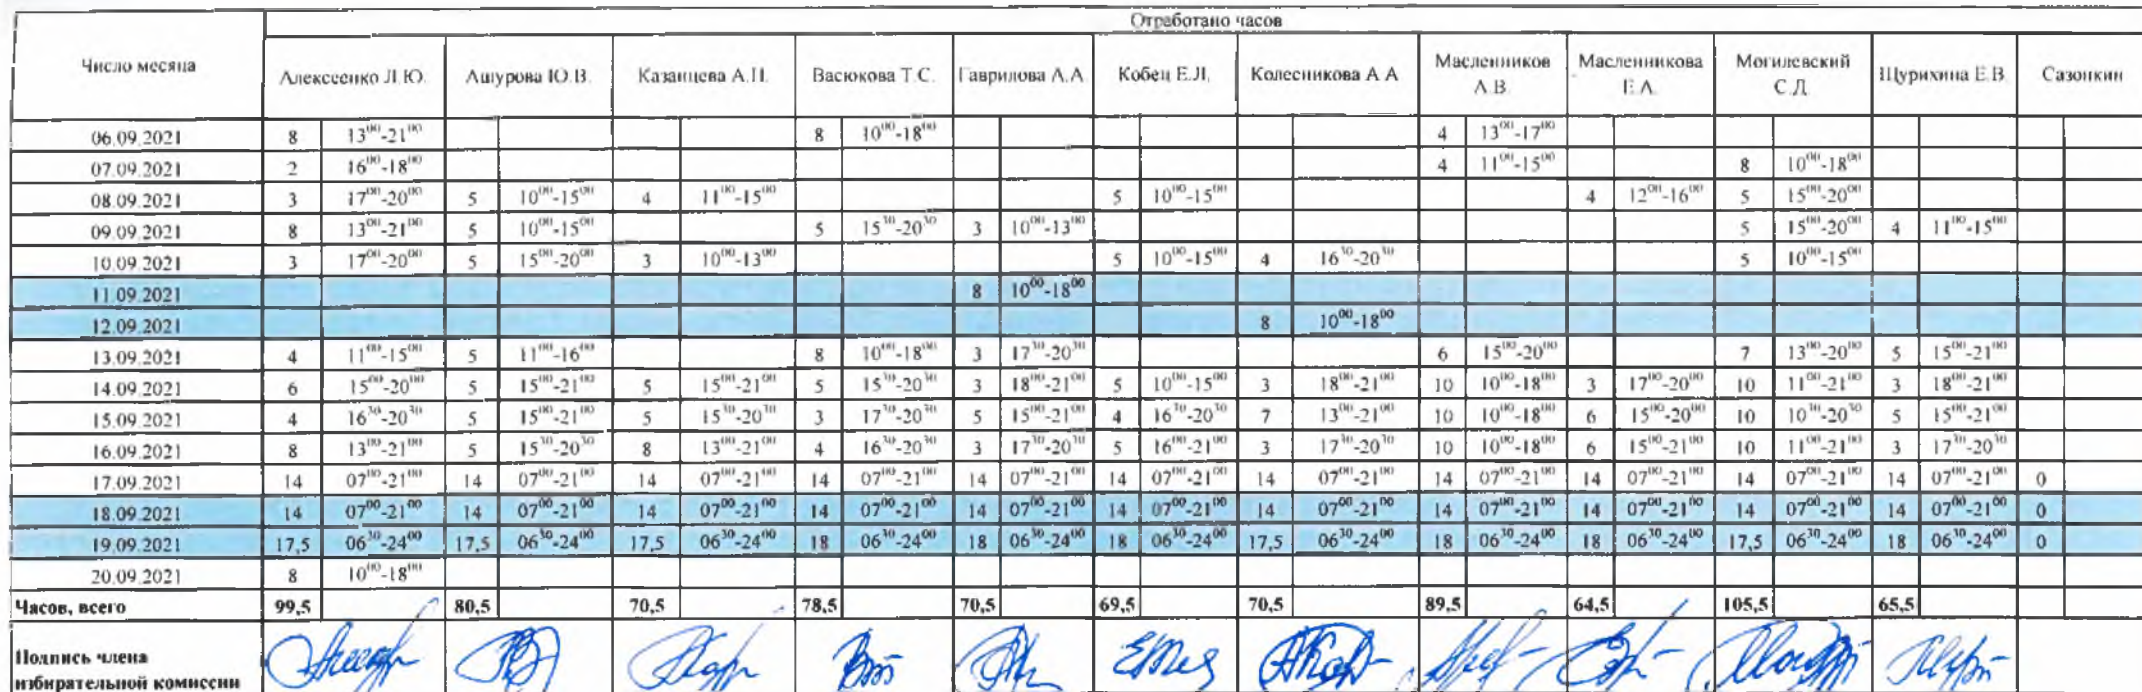 Отработано часов
Число месяца Алексеенко Л.Ю. Ашурова Ю.В. Казанцева А.П. Васюкова Т.С. Гаврилова А.А Кобец Е.Л. Колесникова А.А Масленников А.В. Масленникова Е.А. Могилевский С.Д. Щурихина Е.В. Сазонкин
06.09.2021 8 13⁰⁰-21⁰⁰ 8 10⁰⁰-18⁰⁰ 4 13⁰⁰-17⁰⁰
07.09.2021 2 16⁰⁰-18⁰⁰ 4 11⁰⁰-15⁰⁰ 8 10⁰⁰-18⁰⁰
08.09.2021 3 17⁰⁰-20⁰⁰ 5 10⁰⁰-15⁰⁰ 4 11⁰⁰-15⁰⁰ 5 10⁰⁰-15⁰⁰ 4 12⁰⁰-16⁰⁰ 5 15⁰⁰-20⁰⁰
09.09.2021 8 13⁰⁰-21⁰⁰ 5 10⁰⁰-15⁰⁰ 5 15³⁰-20³⁰ 3 10⁰⁰-13⁰⁰ 5 15⁰⁰-20⁰⁰ 4 11⁰⁰-15⁰⁰
10.09.2021 3 17⁰⁰-20⁰⁰ 5 15⁰⁰-20⁰⁰ 3 10⁰⁰-13⁰⁰ 5 10⁰⁰-15⁰⁰ 4 16³⁰-20³⁰ 5 10⁰⁰-15⁰⁰
11.09.2021 8 10⁰⁰-18⁰⁰
12.09.2021 8 10⁰⁰-18⁰⁰
13.09.2021 4 11⁰⁰-15⁰⁰ 5 11⁰⁰-16⁰⁰ 8 10⁰⁰-18⁰⁰ 3 17³⁰-20³⁰ 6 15⁰⁰-20⁰⁰ 7 13⁰⁰-20⁰⁰ 5 15⁰⁰-21⁰⁰
14.09.2021 6 15⁰⁰-20⁰⁰ 5 15⁰⁰-21⁰⁰ 5 15⁰⁰-21⁰⁰ 5 15³⁰-20³⁰ 3 18⁰⁰-21⁰⁰ 5 10⁰⁰-15⁰⁰ 3 18⁰⁰-21⁰⁰ 10 10⁰⁰-18⁰⁰ 3 17⁰⁰-20⁰⁰ 10 11⁰⁰-21⁰⁰ 3 18⁰⁰-21⁰⁰
15.09.2021 4 16³⁰-20³⁰ 5 15⁰⁰-21⁰⁰ 5 15³⁰-20³⁰ 3 17³⁰-20³⁰ 5 15⁰⁰-21⁰⁰ 4 16³⁰-20³⁰ 7 13⁰⁰-21⁰⁰ 10 10⁰⁰-18⁰⁰ 6 15⁰⁰-20⁰⁰ 10 10³⁰-20³⁰ 5 15⁰⁰-21⁰⁰
16.09.2021 8 13⁰⁰-21⁰⁰ 5 15³⁰-20³⁰ 8 13⁰⁰-21⁰⁰ 4 16³⁰-20³⁰ 3 17³⁰-20³⁰ 5 16⁰⁰-21⁰⁰ 3 17³⁰-20³⁰ 10 10⁰⁰-18⁰⁰ 6 15⁰⁰-21⁰⁰ 10 11⁰⁰-21⁰⁰ 3 17³⁰-20³⁰
17.09.2021 14 07⁰⁰-21⁰⁰ 14 07⁰⁰-21⁰⁰ 14 07⁰⁰-21⁰⁰ 14 07⁰⁰-21⁰⁰ 14 07⁰⁰-21⁰⁰ 14 07⁰⁰-21⁰⁰ 14 07⁰⁰-21⁰⁰ 14 07⁰⁰-21⁰⁰ 14 07⁰⁰-21⁰⁰ 14 07⁰⁰-21⁰⁰ 14 07⁰⁰-21⁰⁰ 0
18.09.2021 14 07⁰⁰-21⁰⁰ 14 07⁰⁰-21⁰⁰ 14 07⁰⁰-21⁰⁰ 14 07⁰⁰-21⁰⁰ 14 07⁰⁰-21⁰⁰ 14 07⁰⁰-21⁰⁰ 14 07⁰⁰-21⁰⁰ 14 07⁰⁰-21⁰⁰ 14 07⁰⁰-21⁰⁰ 14 07⁰⁰-21⁰⁰ 14 07⁰⁰-21⁰⁰ 0
19.09.2021 17,5 06³⁰-24⁰⁰ 17,5 06³⁰-24⁰⁰ 17,5 06³⁰-24⁰⁰ 18 06³⁰-24⁰⁰ 18 06³⁰-24⁰⁰ 18 06³⁰-24⁰⁰ 17,5 06³⁰-24⁰⁰ 18 06³⁰-24⁰⁰ 18 06³⁰-24⁰⁰ 17,5 06³⁰-24⁰⁰ 18 06³⁰-24⁰⁰ 0
20.09.2021 8 10⁰⁰-18⁰⁰
Часов, всего 99,5 80,5 70,5 78,5 70,5 69,5 70,5 89,5 64,5 105,5 65,5
Подпись члена
избирательной комиссии